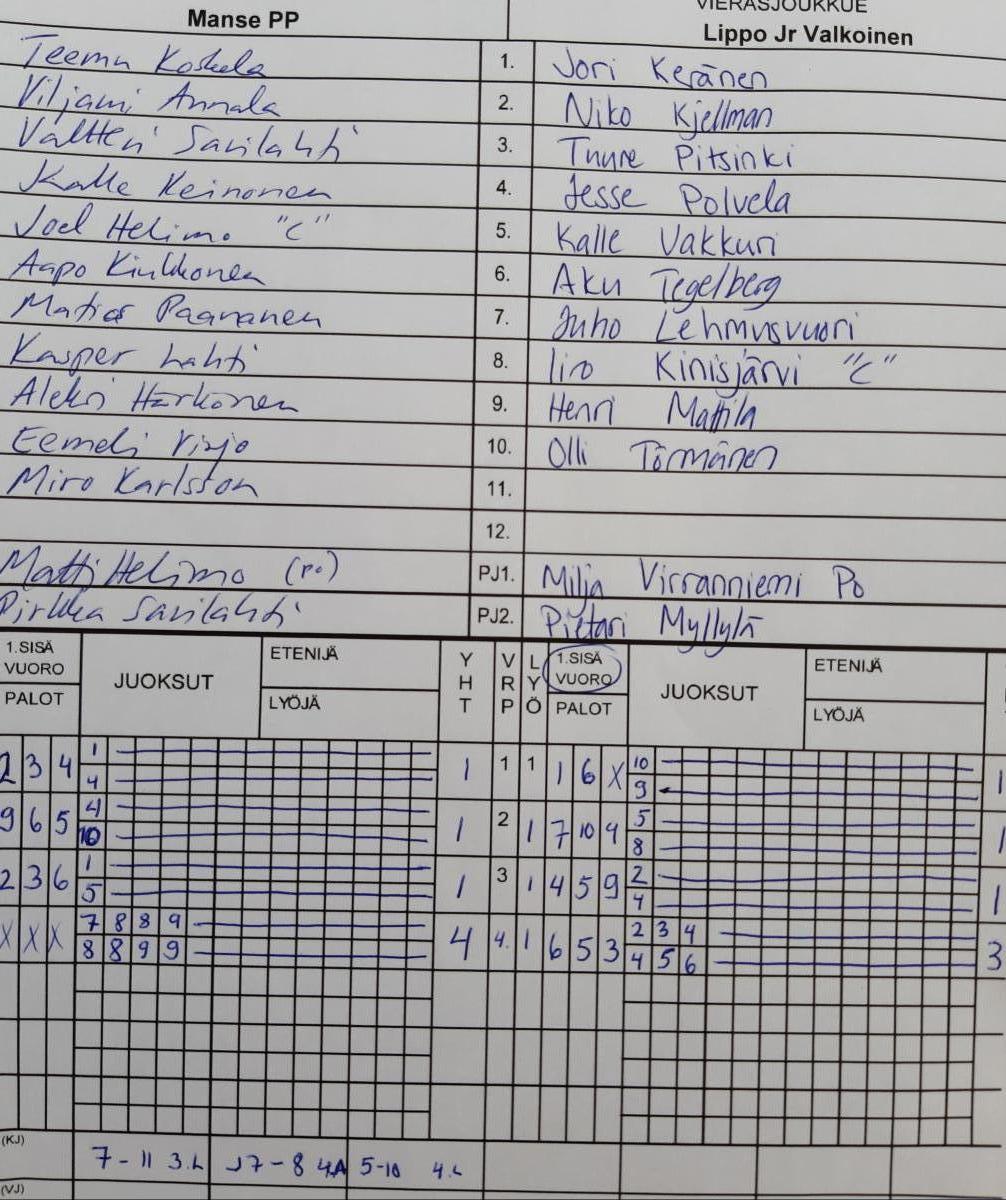 VIERASJOUKKUE
Manse PP Lippo Jr Valkoinen
Teemu Koskela 1. Jori Keränen
Viljami Annala 2. Niko Kjellman
Valtteri Savilahti 3. Tuure Pitsinki
Kalle Keinonen 4. Jesse Polvela
Joel Helimo "C" 5. Kalle Vakkuri
Aapo Kiukkonen 6. Aku Tegelberg
Matias Paananen 7. Juho Lehmusvuori
Kasper Lahti 8. Iiro Kinisjärvi "C"
Aleksi Härkönen 9. Henri Mattila
Eemeli 10. Olli Törmänen
Miro Karlsson 11.
12.
Matti Helimo (P.) PJ1. Milja Virranniemi Po
Pirkka Savilahti PJ2. Pietari Myllylä
1.SISÄ VUORO PALOT JUOKSUT ETENIJÄ LYÖJÄ YHT VRP LYÖ 1.SISÄ VUORO PALOT JUOKSUT ETENIJÄ LYÖJÄ
2 3 4 1 1 1 1 1 6 X 10 1
4 9
9 6 5 4 1 2 1 7 10 9 5 1
10 8
2 3 6 1 1 3 1 4 5 9 2 1
5 4
X X X 7 8 8 9 4 4. 1 6 5 3 2 3 4 3
8 8 9 9 4 5 6
(KJ) 7-11 3.L J7-8 4A 5-10 4.L
(VJ)